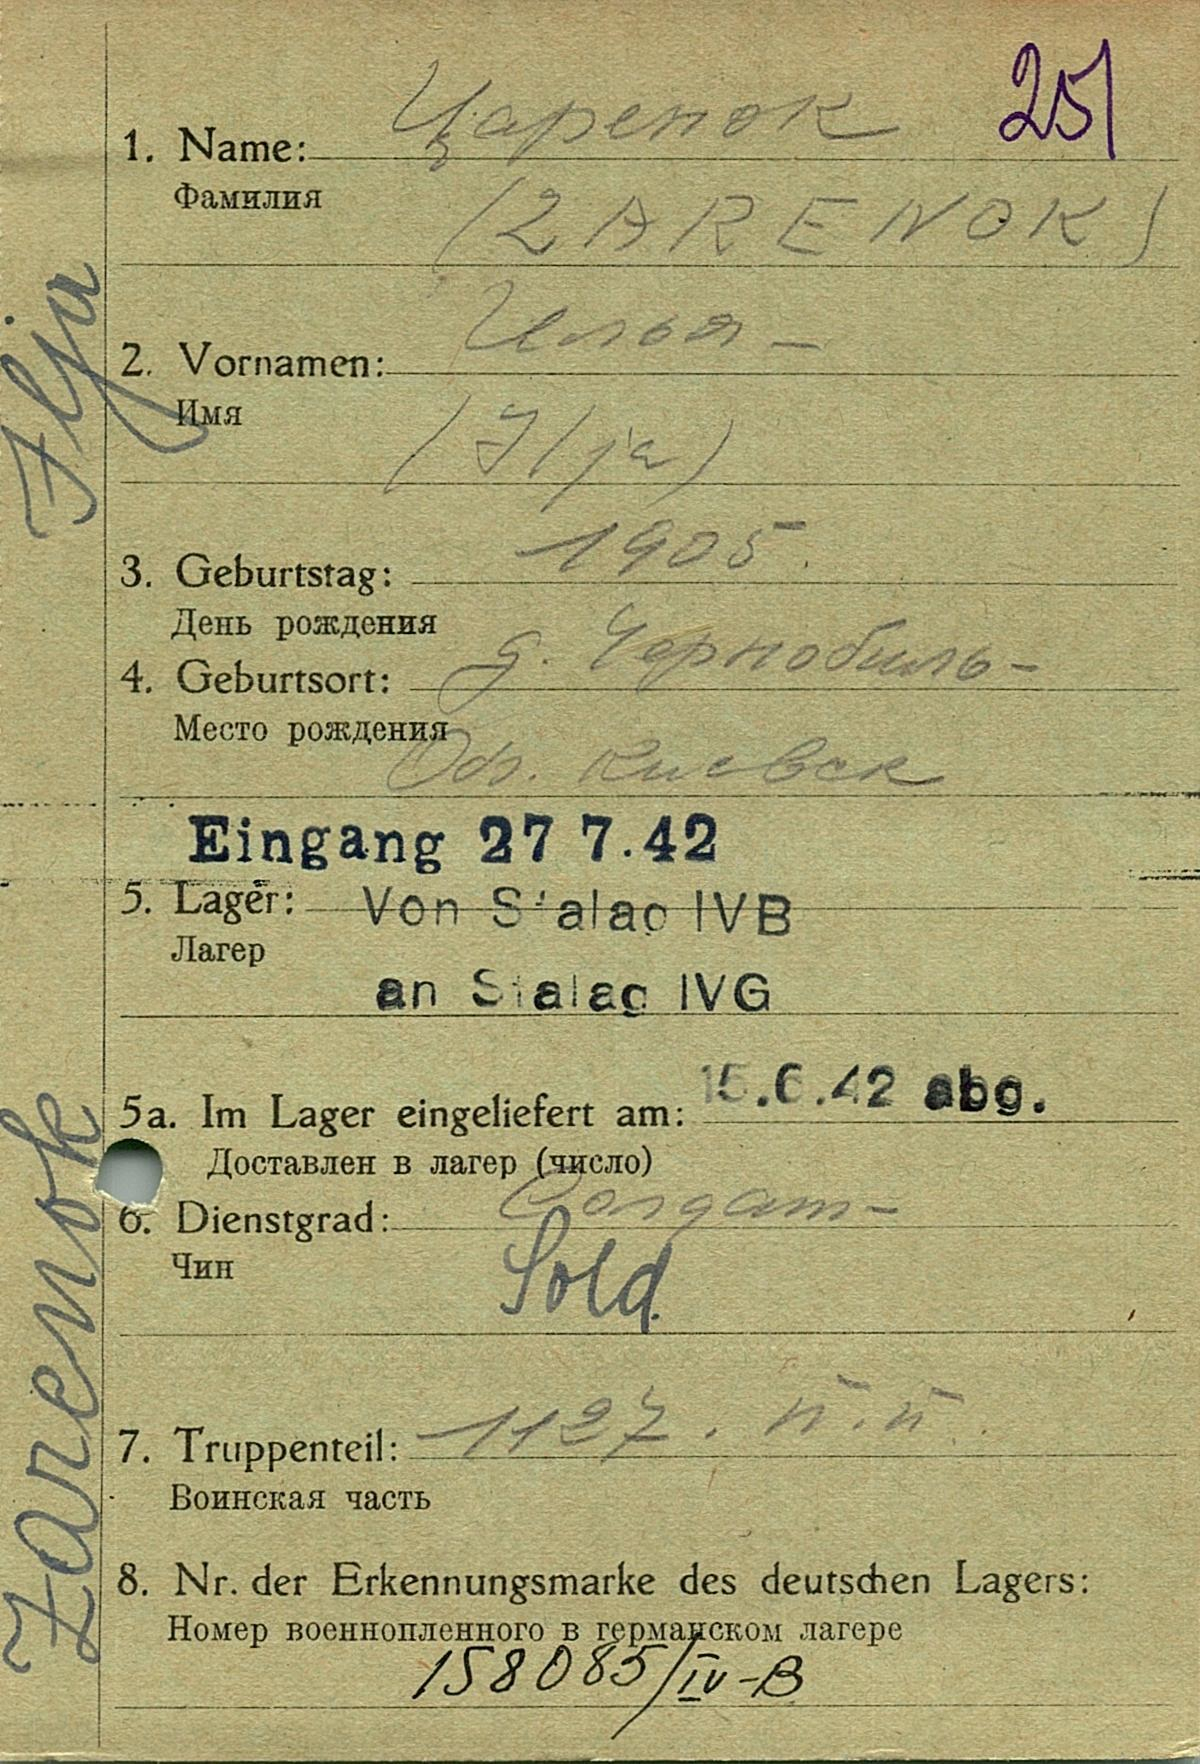 251
Царенок
1. Name:
Фамилия
(ZARENOK)
Илья
2. Vornamen:
Имя
(Ilja)
1905
3. Geburtstag:
День рождения
д. Чернобиль
4. Geburtsort:
Место рождения
Киевск
Eingang 27 7.42
5. Lager: Von Stalag IVB
Лагер
an Stalag IVG
5a. Im Lager eingeliefert am: 15.6.42 abg.
Доставлен в лагер (число)
Солдат
6. Dienstgrad:
Чин
Sold.
7. Truppenteil: 1127. п.п.
Воинская часть
8. Nr. der Erkennungsmarke des deutschen Lagers:
Номер военнопленного в германском лагере
158085/IV-B
Zarenok Ilja